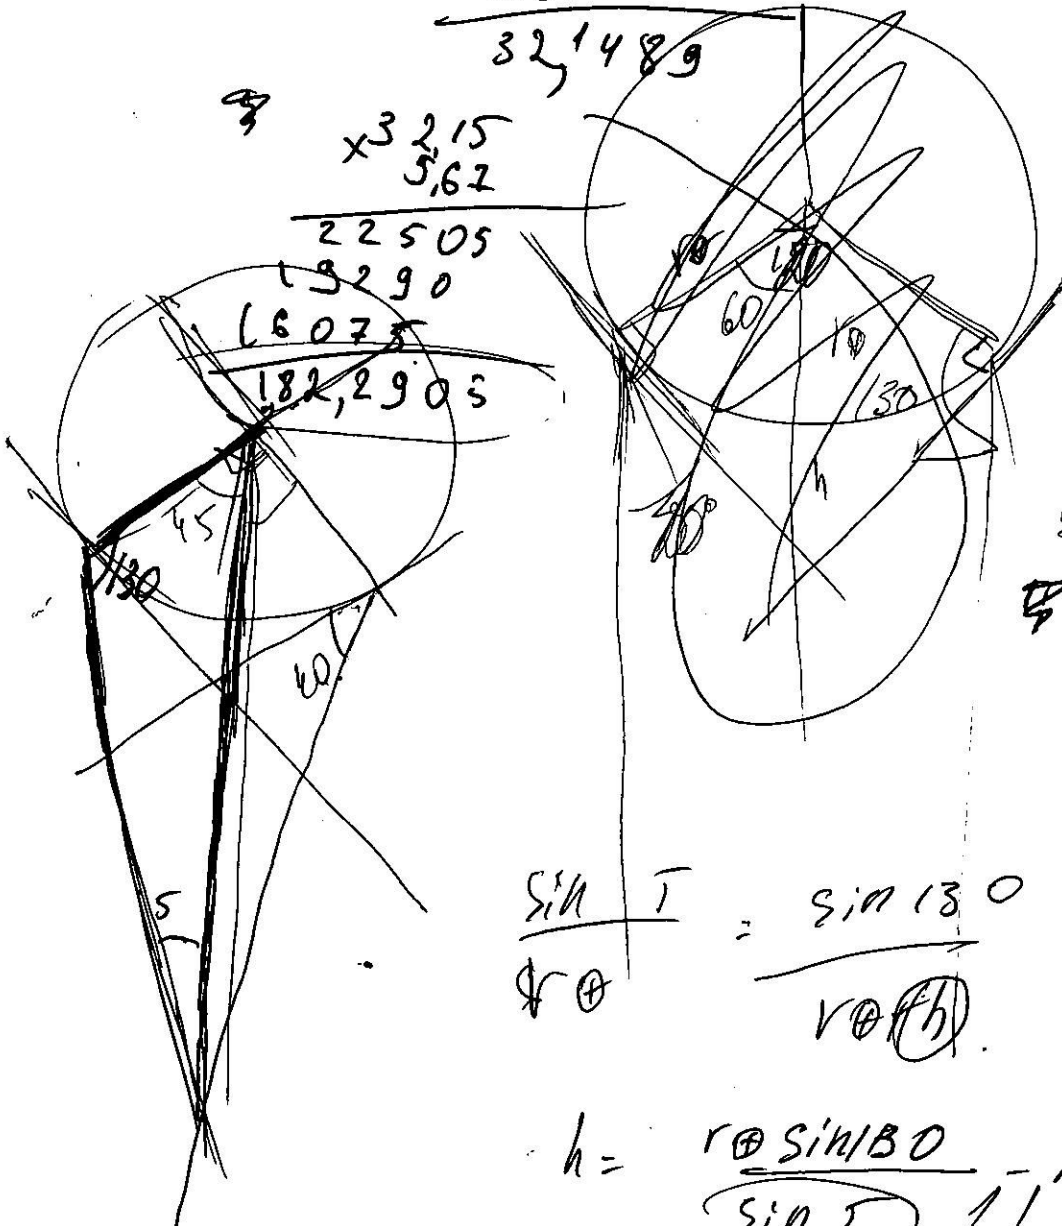 32,1489
x 32,15
5,67
22505
19290
16075
182,2905
45
130
40
5
60
10
130
h
sin 5 = sin 130
r⊕ r⊕+h
h = r⊕ sin 130
sin 5